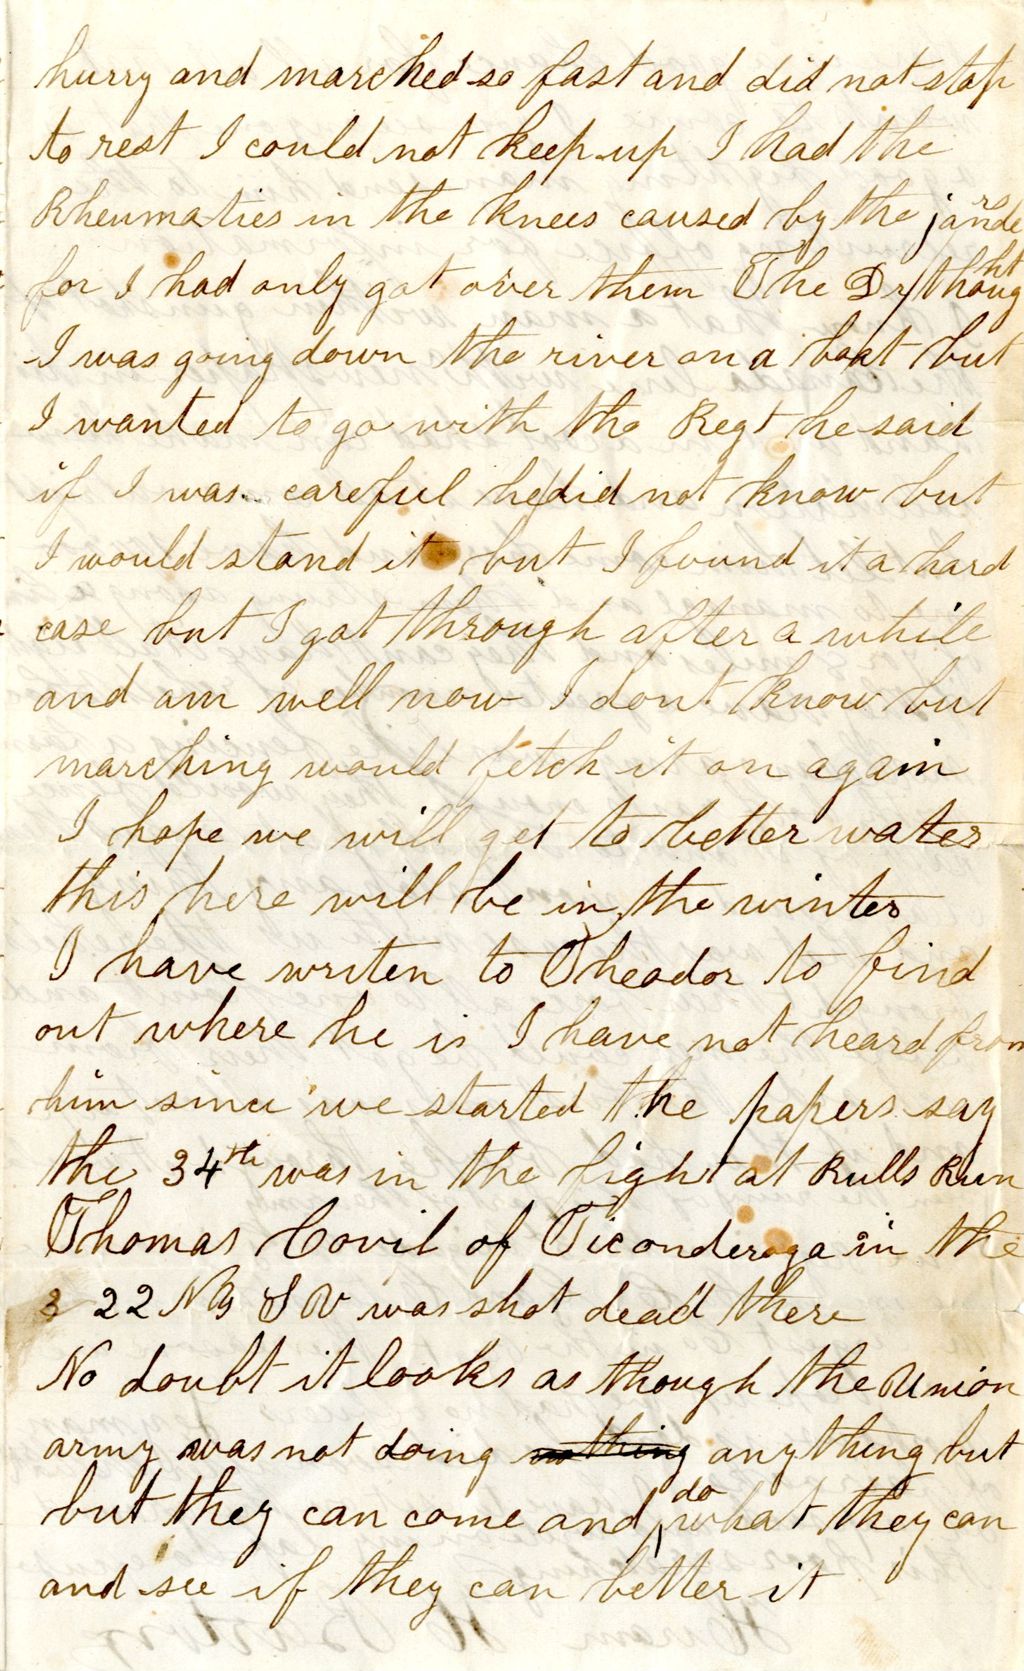 hurry and marched so fast and did not stop
to rest I could not keep up I had the
Rheumaties in the knees caused by the janders
for I had only got over them The Dr thought
I was going down the river on a boat but
I wanted to go with the Regt he said
if I was careful he did not know but
I would stand it but I found it a hard
case but I got through after a while
and am well now I dont know but
marching would fetch it on again
I hope we will get to better water
this here will be in the winter
I have writen to Theador to find
out where he is I have not heard from
him since we started the papers say
the 34th was in the fight at Bulls Run
Thomas Covil of Ticonderoga in the
22 NY S V was shot dead there
No doubt it looks as though the Union
army was not doing nothing anything but
but they can come and do what they can
and see if they can better it